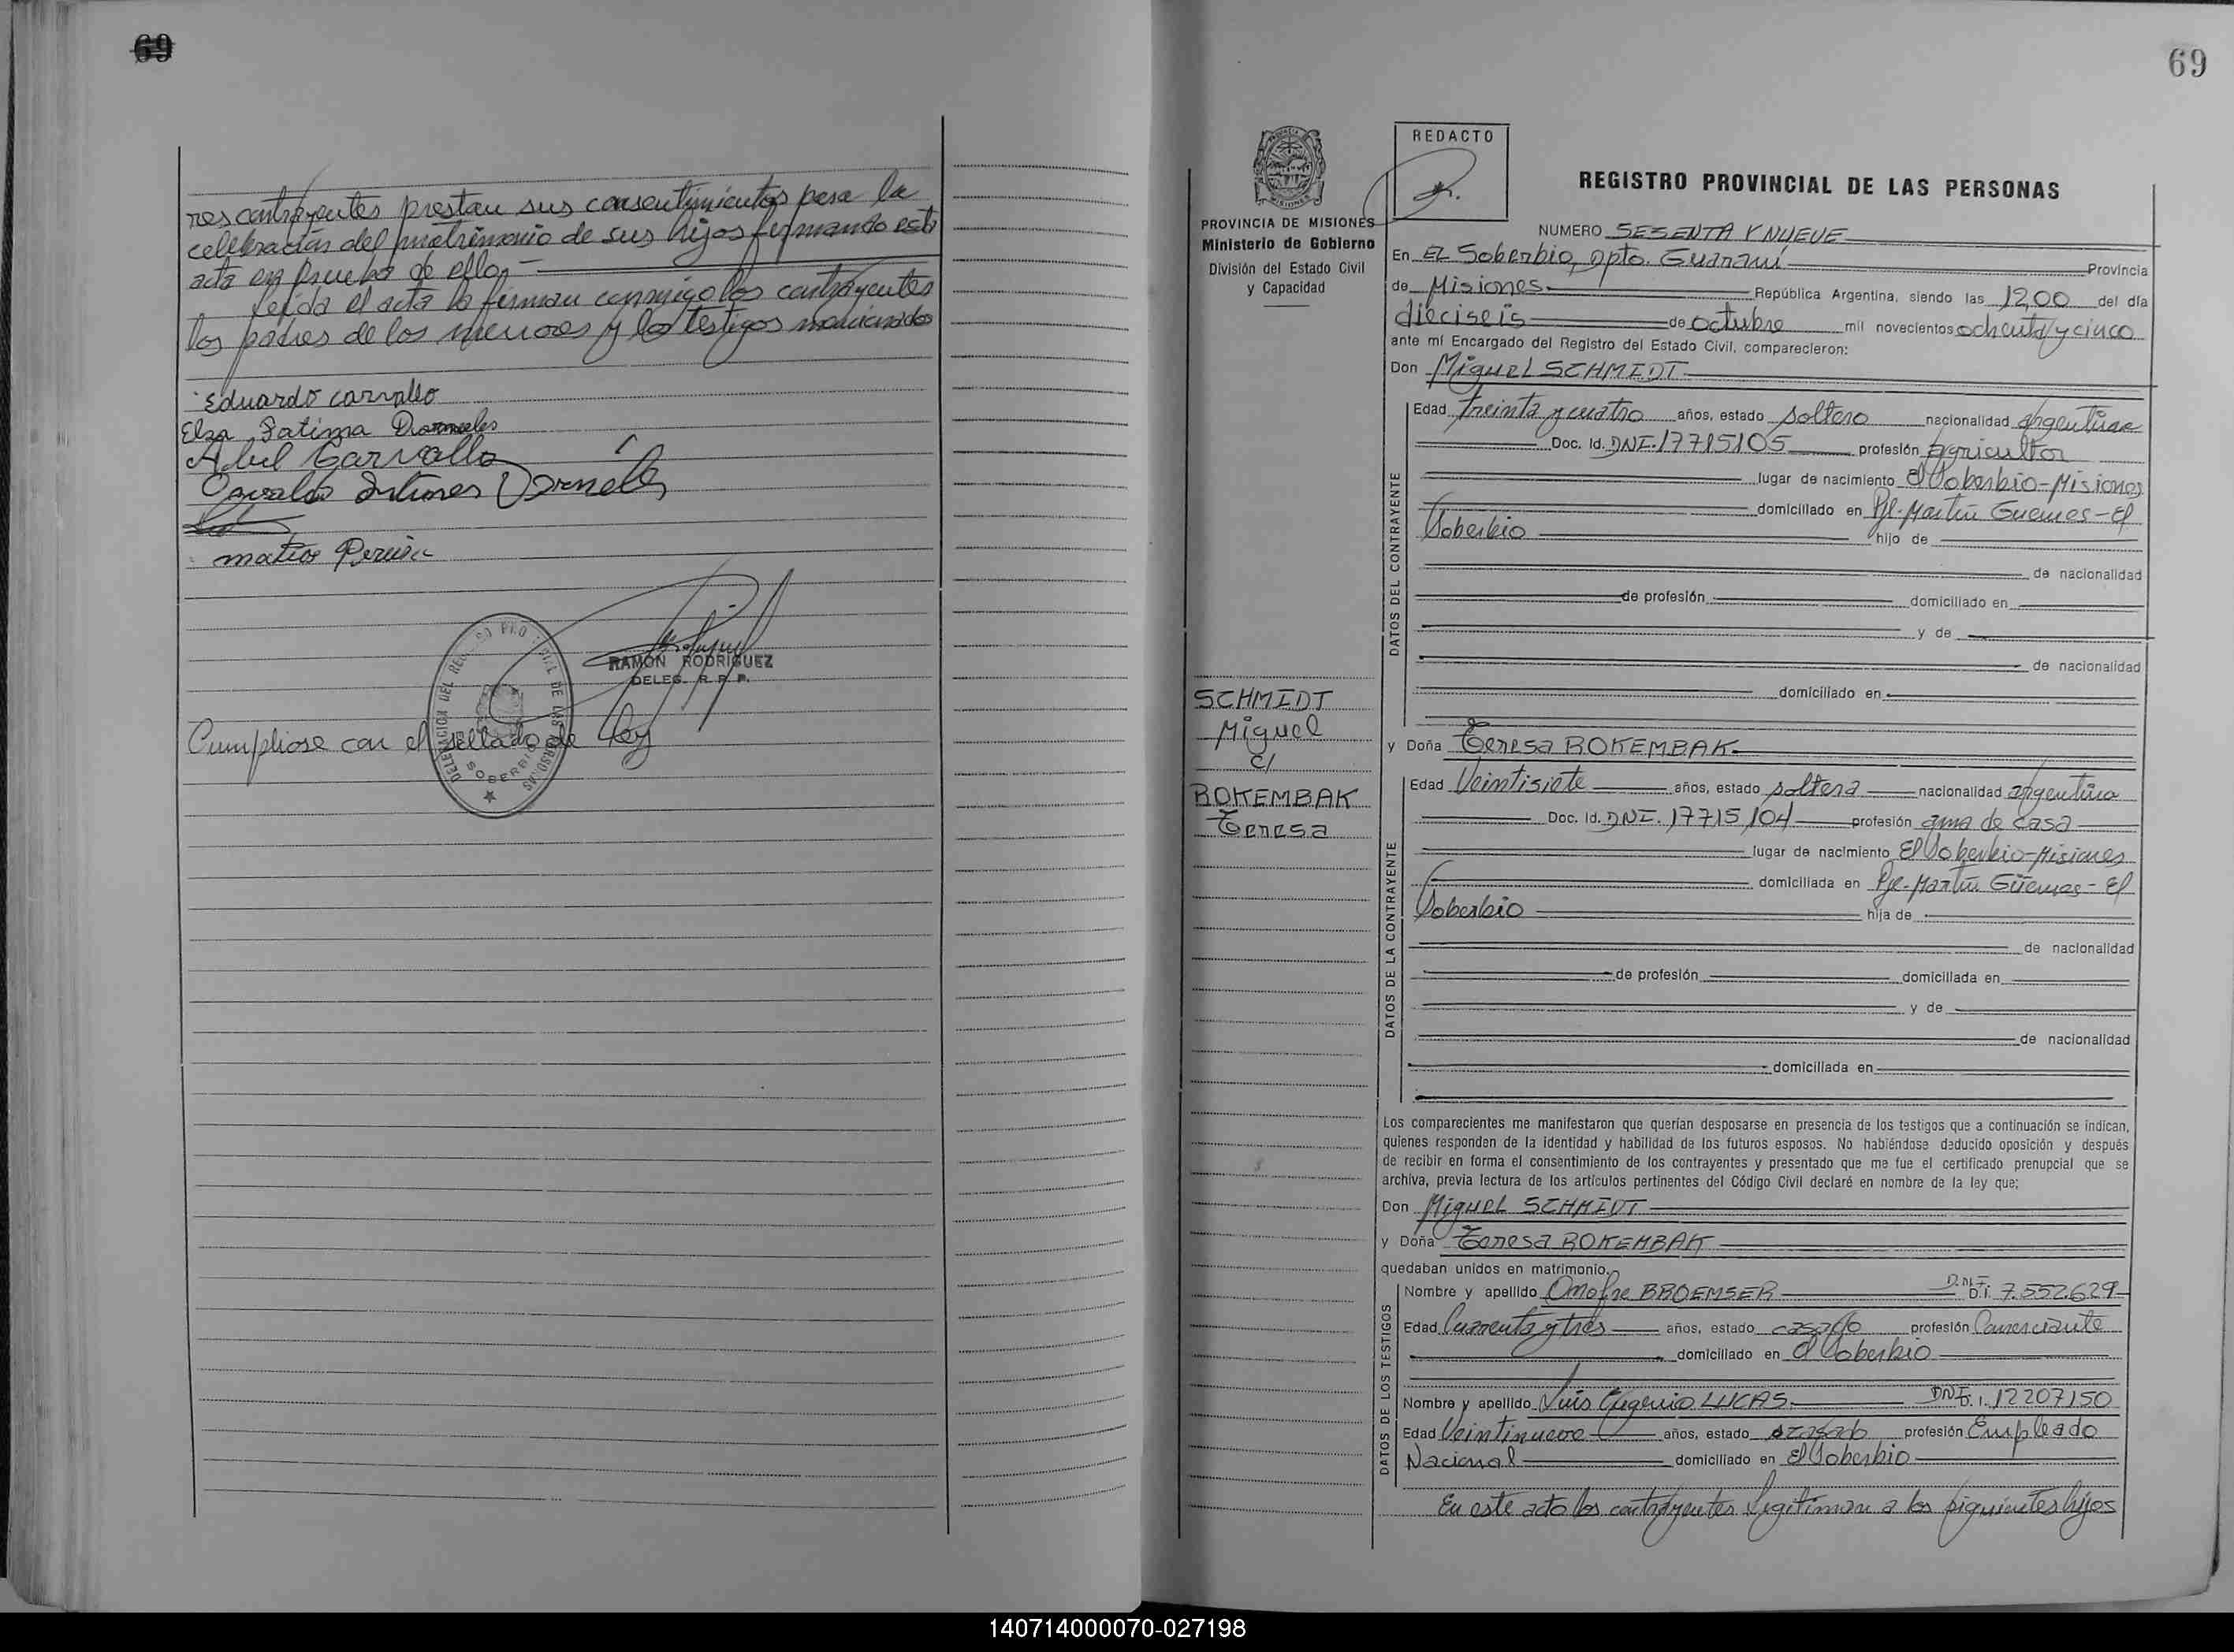 69
nes contrayentes prestan sus consentimientos para la
celebración del matrimonio de sus hijos firmando esta
acta en prueba de ello.-
Leida el acta la firman conmigo los contrayentes
los padres de los menores y los testigos mencionados
Eduardo carvallo
Elza Fatima Dornelles
Abel Carvallo
Osvaldo Antunes Dornelles
matios Pereira
RAMON RODRIGUEZ
DELEG. R. P. P.
DELEGACION DEL REGISTRO PROVINCIAL DE LAS PERSONAS
SOBERBIO
Cumpliose con el sellado de ley
69
REDACTO
PROVINCIA DE MISIONES
Ministerio de Gobierno
División del Estado Civil
y Capacidad
SCHMIDT
Miguel
c/
ROKEMBAK
Teresa
REGISTRO PROVINCIAL DE LAS PERSONAS
NUMERO SESENTA Y NUEVE
En EL Soberbio, Dpto. Guaraní Provincia
de Misiones República Argentina, siendo las 12,00 del día
dieciseis de octubre mil novecientos ochenta y cinco
ante mí Encargado del Registro del Estado Civil, comparecieron:
Don Miguel SCHMIDT
DATOS DEL CONTRAYENTE
Edad treinta y cuatro años, estado soltero nacionalidad argentina
Doc. Id. DNI. 17715105 profesión agricultor
lugar de nacimiento El Soberbio-Misiones
domiciliado en Pje. Martín Guemes-El
Soberbio hijo de
de nacionalidad
de profesión domiciliado en
y de
de nacionalidad
domiciliado en
y Doña Teresa ROKEMBAK
DATOS DE LA CONTRAYENTE
Edad Veintisiete años, estado soltera nacionalidad argentina
Doc. Id. DNI. 17715104 profesión ama de casa
lugar de nacimiento El Soberbio-Misiones
domiciliada en Pje. Martín Güemes-El
Soberbio hija de
de nacionalidad
de profesión domiciliada en
y de
de nacionalidad
domiciliada en
Los comparecientes me manifestaron que querían desposarse en presencia de los testigos que a continuación se indican,
quienes responden de la identidad y habilidad de los futuros esposos. No habiéndose deducido oposición y después
de recibir en forma el consentimiento de los contrayentes y presentado que me fue el certificado prenupcial que se
archiva, previa lectura de los artículos pertinentes del Código Civil declaré en nombre de la ley que:
Don Miguel SCHMIDT
y Doña Teresa ROKEMBAK
quedaban unidos en matrimonio.
DATOS DE LOS TESTIGOS
Nombre y apellido Onofre BROEMSER D.N.I. D.I. 7.552.629
Edad Cuarenta y tres años, estado casado profesión Comerciante
domiciliado en El Soberbio
Nombre y apellido Luis Eugenio LUCAS DNI. D.I. 12207150
Edad Veintinueve años, estado casado profesión Empleado
Nacional domiciliado en El Soberbio
En este acto los contrayentes legitiman a los siguientes hijos
140714000070-027198